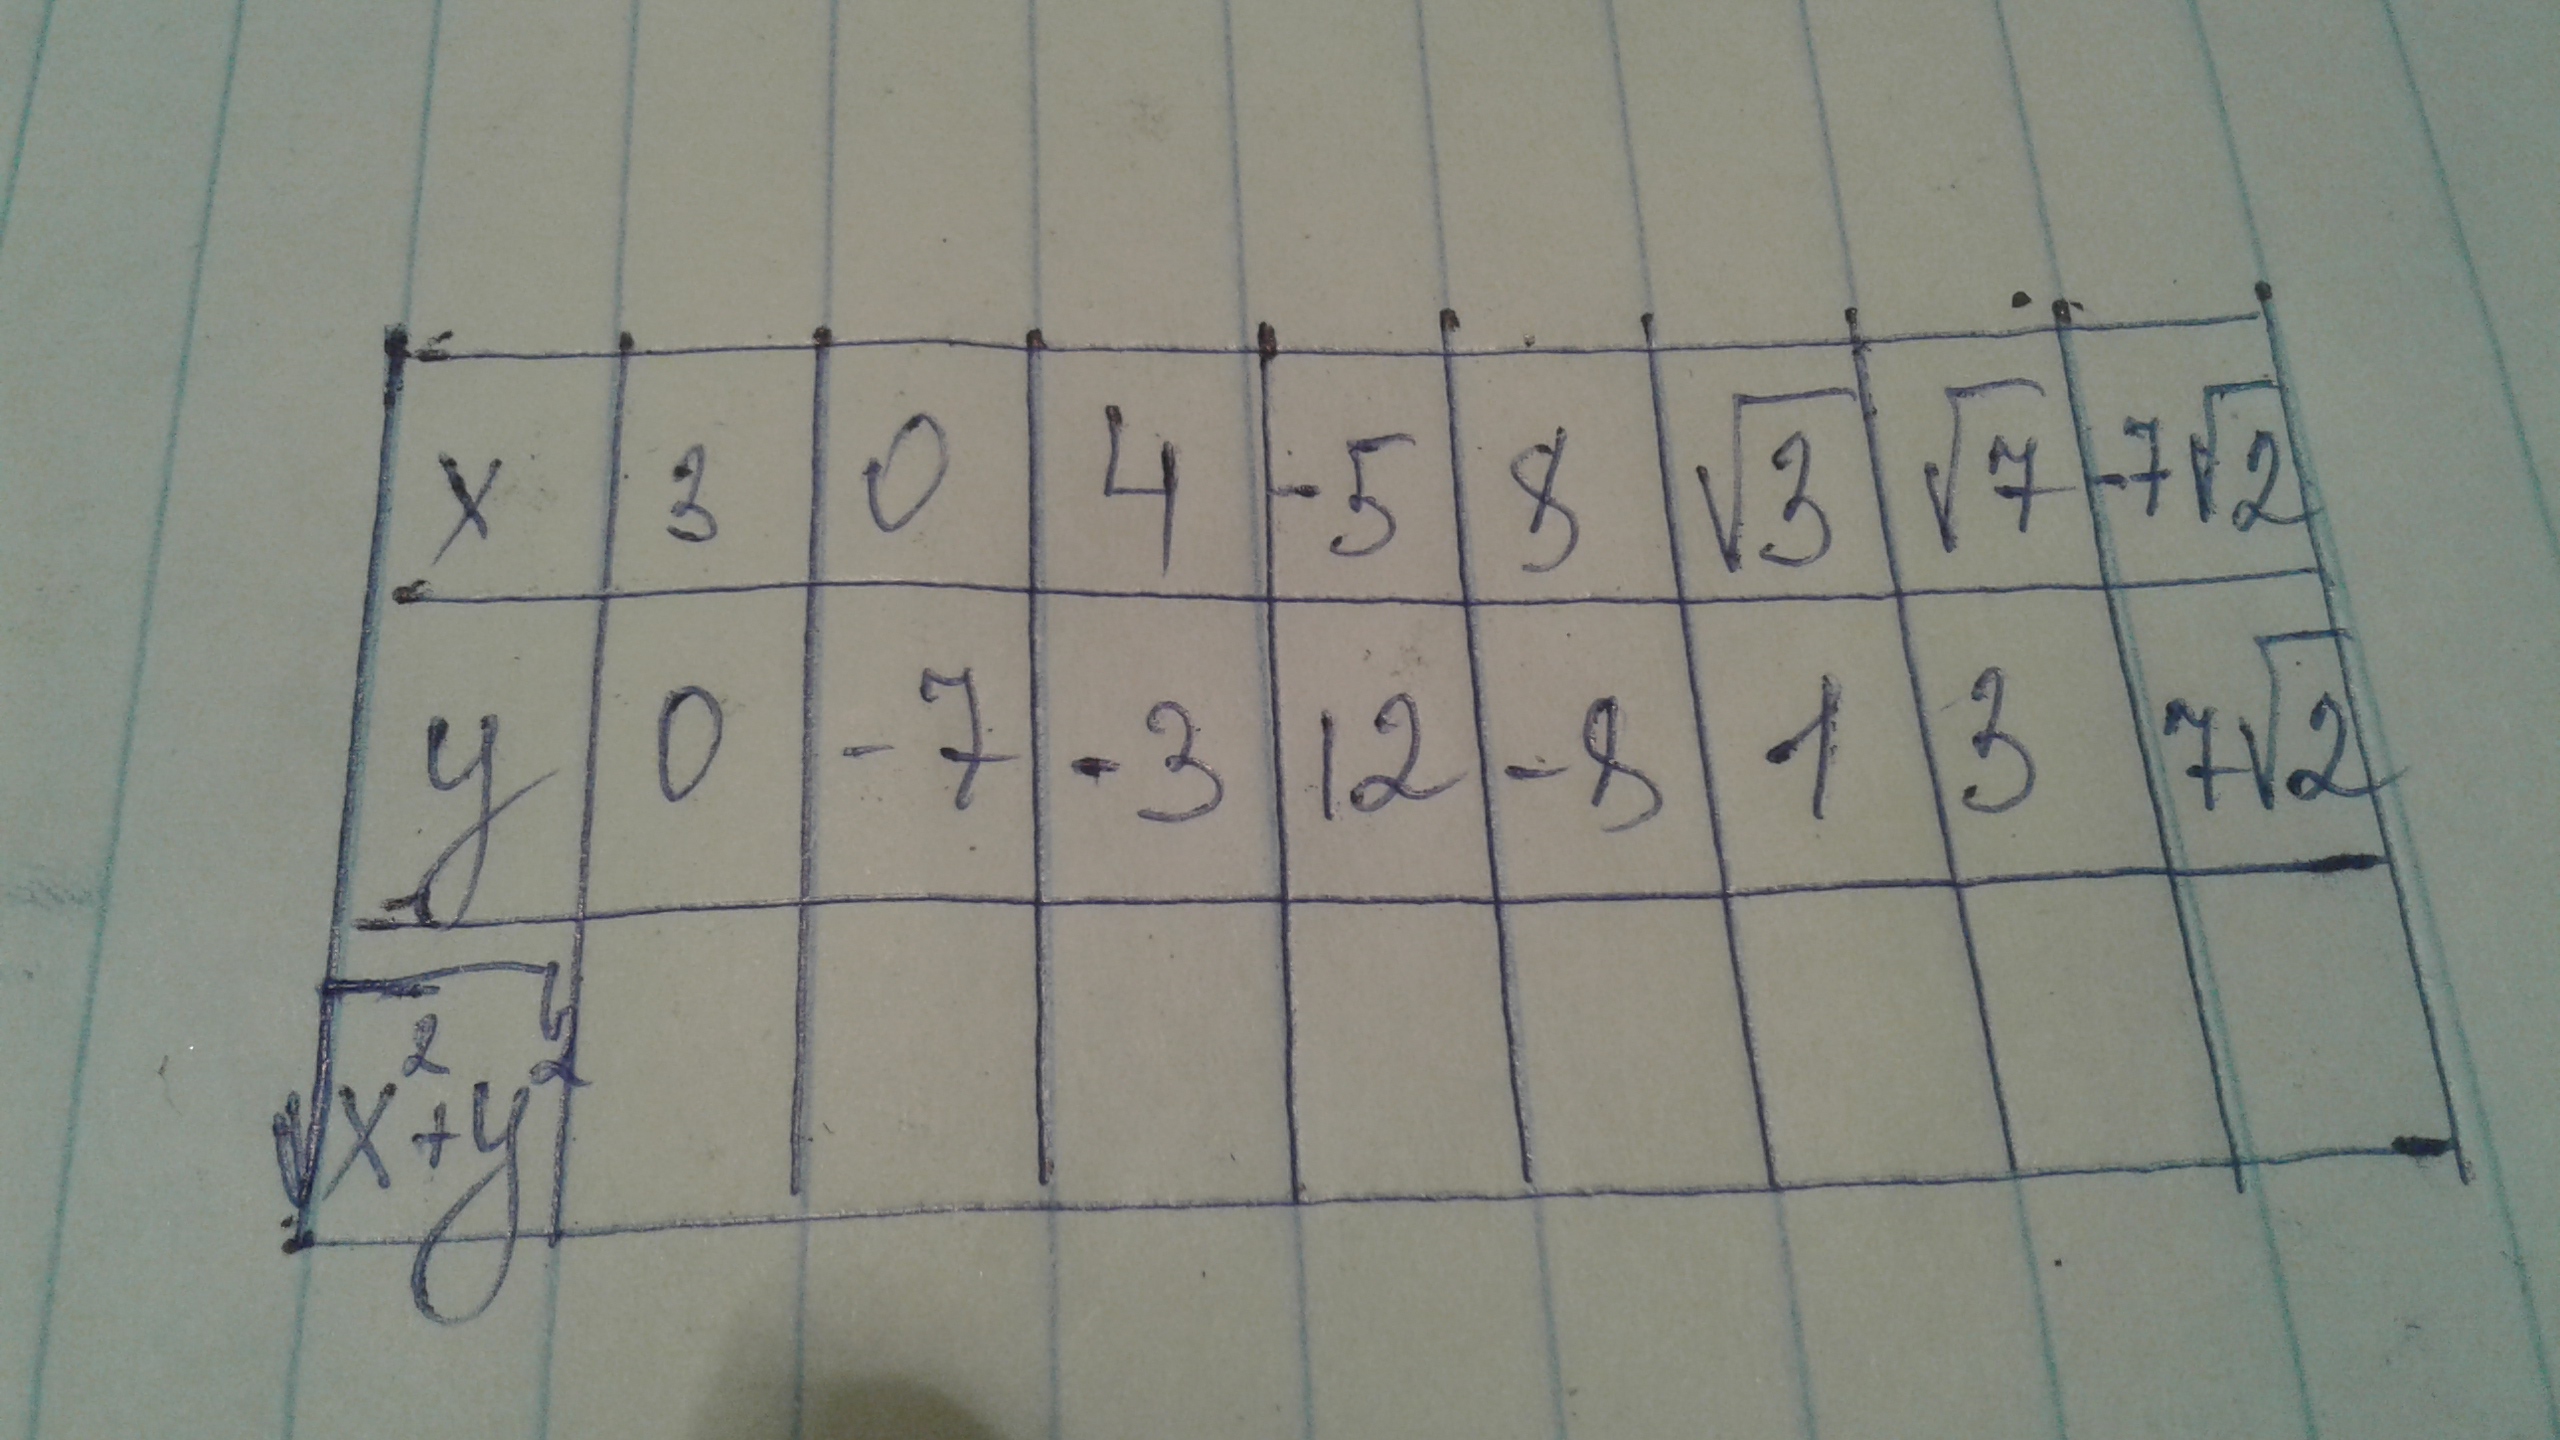 x 3 0 4 -5 8 √3 √7 -7√2
y 0 -7 -3 12 -8 1 3 7√2
√x²+y²